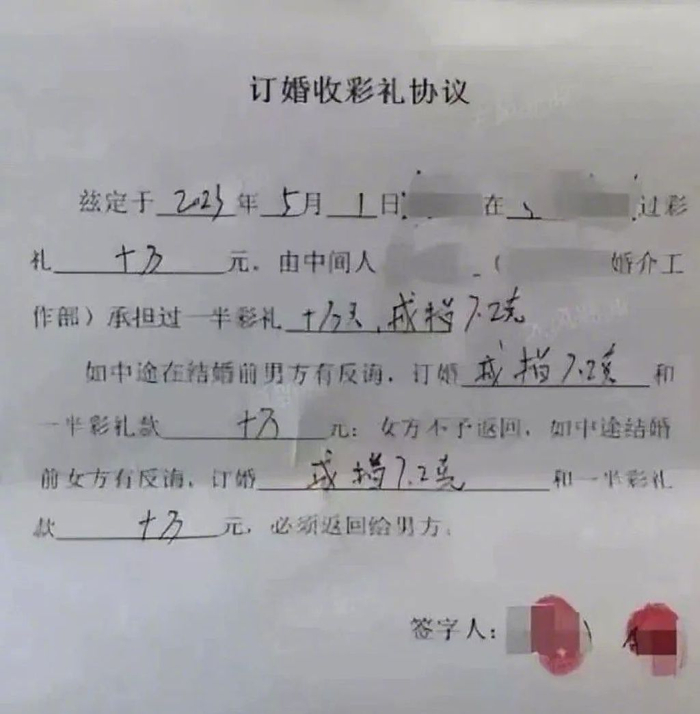 订婚收彩礼协议
兹定于2023年5月1日在过彩
礼十万元．由中间人（婚介工
作部）承担过一半彩礼十万元，戒指7.2克
如中途在结婚前男方有反诲．订婚戒指7.2克和
一半彩礼款十万元；女方不予返回．如中途结婚
前女方有反诲．订婚戒指7.2克和一半彩礼
款十万元，必须返回给男方．
签字人：